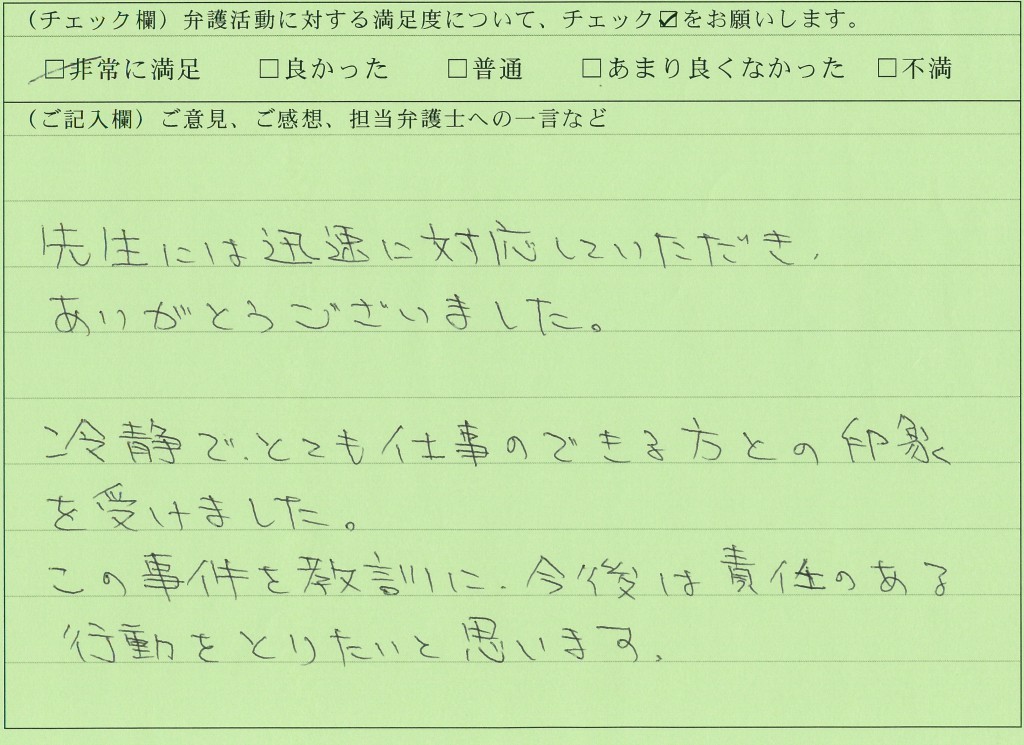 （チェック欄）弁護活動に対する満足度について、チェック☑をお願いします。
☑非常に満足 □良かった □普通 □あまり良くなかった □不満
（ご記入欄）ご意見、ご感想、担当弁護士への一言など
先生には迅速に対応していただき、
ありがとうございました。
冷静で、とても仕事のできる方との印象
を受けました。
この事件を教訓に、今後は責任のある
行動をとりたいと思います。